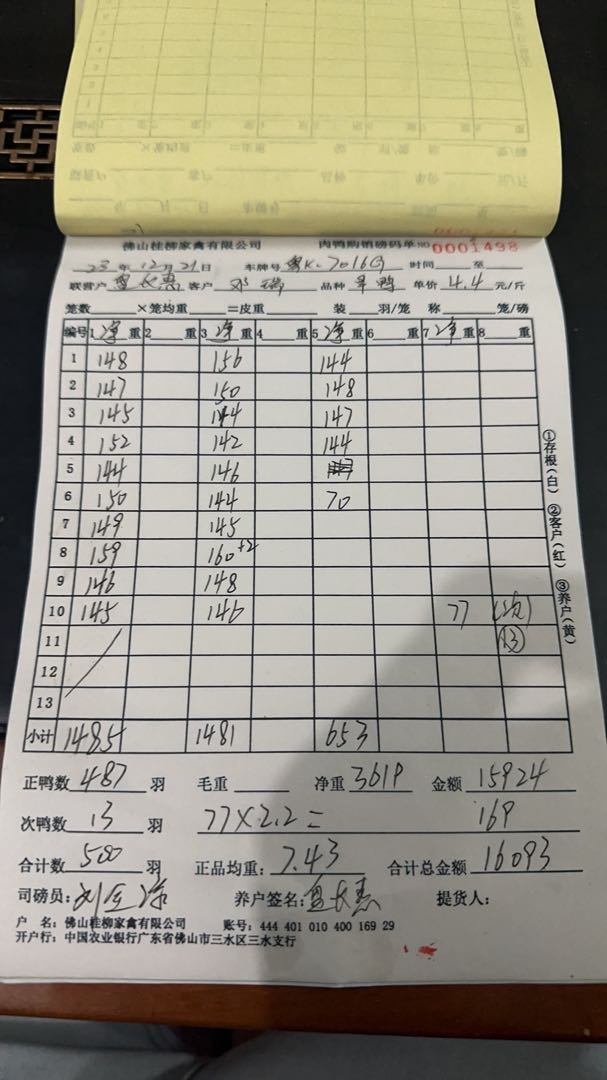 佛山桂柳家禽有限公司 肉鸭购销磅码单 NO 0001498
23年12月21日 车牌号 粤K·7016G 时间 至
联营户 客户 邓瑞 品种 单价 4.4 元/斤
笼数 ×笼均重 =皮重 装 羽/笼 称 笼/磅
编号 1净重 2重 3净重 4重 5净重 6重 7净重 8重
1 148 156 144
2 147 150 148
3 145 144 147
4 152 142 144
5 144 146
6 150 144 70
7 149 145
8 159 160+2
9 146 148
10 145 146 77 (次)
11 13
12
13
小计 1485 1481 653
正鸭数 487 羽 毛重 净重 3619 金额 15924
次鸭数 13 羽 77×2.2= 169
合计数 500 羽 正品均重: 7.43 合计总金额 16093
司磅员: 养户签名: 提货人:
户 名: 佛山桂柳家禽有限公司 账号: 444 401 010 400 169 29
开户行: 中国农业银行广东省佛山市三水区三水支行
①存根(白) ②客户(红) ③养户(黄)